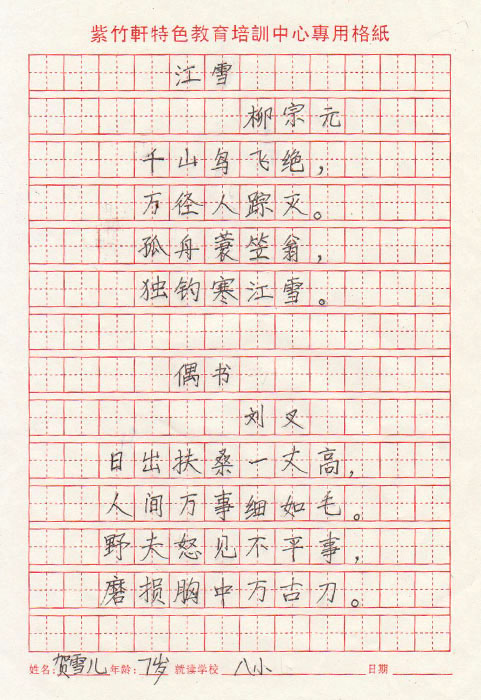 紫竹軒特色教育培訓中心專用格紙
江雪
柳宗元
千山鸟飞绝，
万径人踪灭。
孤舟蓑笠翁，
独钓寒江雪。
偶书
刘叉
日出扶桑一丈高，
人间万事细如毛。
野夫怒见不平事，
磨损胸中万古刀。
姓名：贺雪儿 年龄：7岁 就读学校 八小 日期